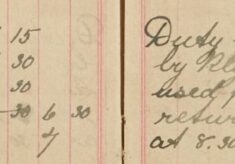 15
30
30
30 6 30
7
Duty
by
used
retur
at 8.30